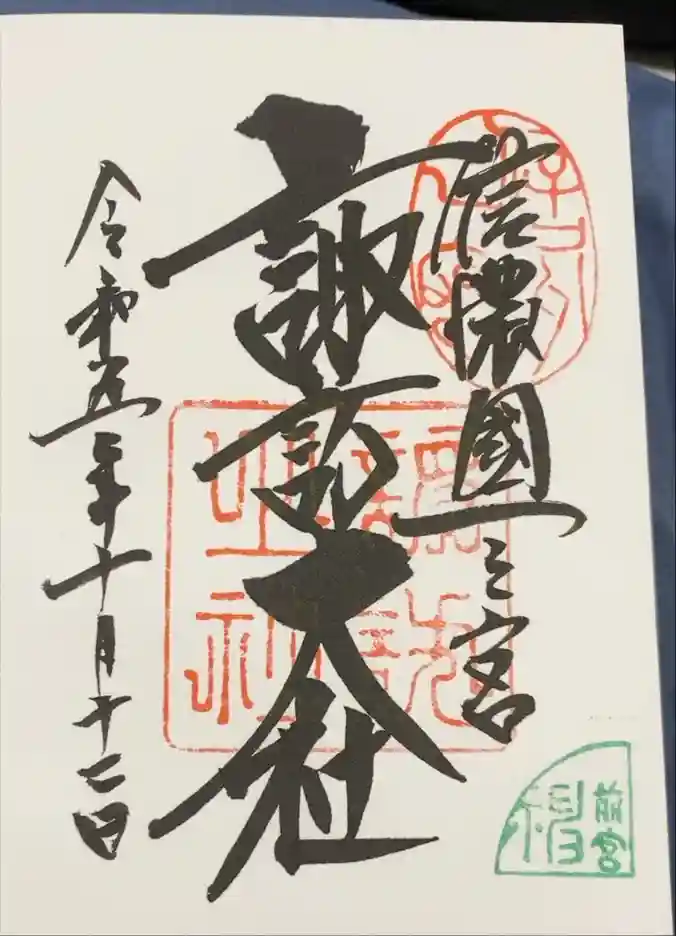 信濃國一之宮
諏訪大社
令和五年十月十二日
前宮